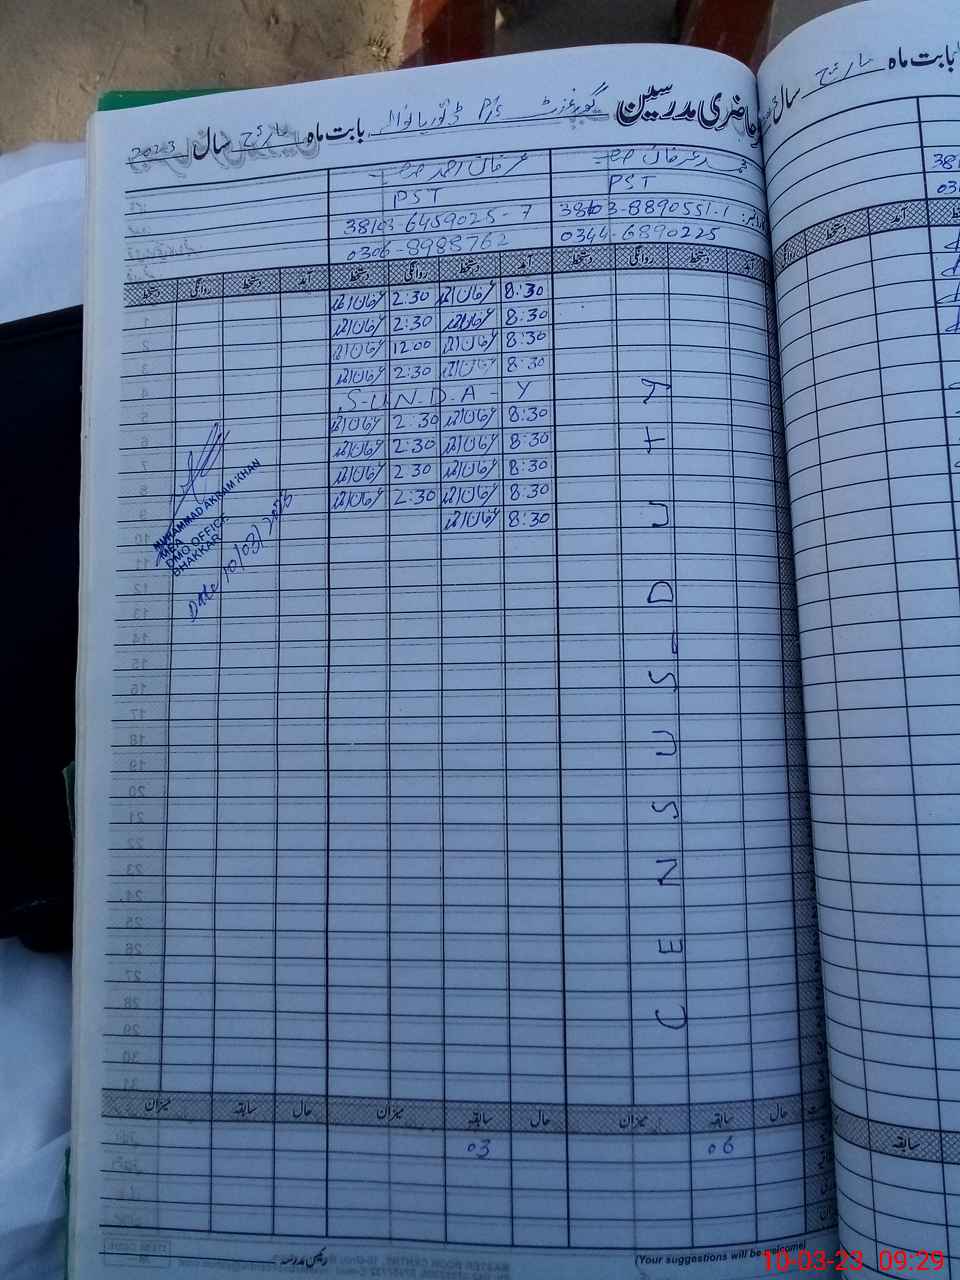 حاضری مدرسین گورنمنٹ P/S بابت ماہ مارچ سال 2023
بابت ماہ مارچ سال
محمد عرفان عرفان احمد
PST PST
38103-8890551-1 38103-6459025-7
0344-6890225 0306-8988762
آمد دستخط روانگی دستخط آمد دستخط روانگی دستخط آمد دستخط روانگی دستخط
8:30 عرفان احمد 2:30 عرفان احمد
8:30 عرفان احمد 2:30 عرفان احمد
8:30 عرفان احمد 12:00 عرفان احمد
8:30 عرفان احمد 2:30 عرفان احمد
S-U-N-D-A-Y
8:30 عرفان احمد 2:30 عرفان احمد
8:30 عرفان احمد 2:30 عرفان احمد
8:30 عرفان احمد 2:30 عرفان احمد
8:30 عرفان احمد 2:30 عرفان احمد
8:30 عرفان احمد
CENSUS-DUTY
MUHAMMAD AKRAM KHAN
MEA
DMO OFFICE
BHAKKAR
Date 10/03/2023
حال سابقہ میزان حال سابقہ میزان حال سابقہ میزان
06 03
سابقہ
رئیس مدرسہ
(Your suggestions will be welcome)
10-03-23 09:29